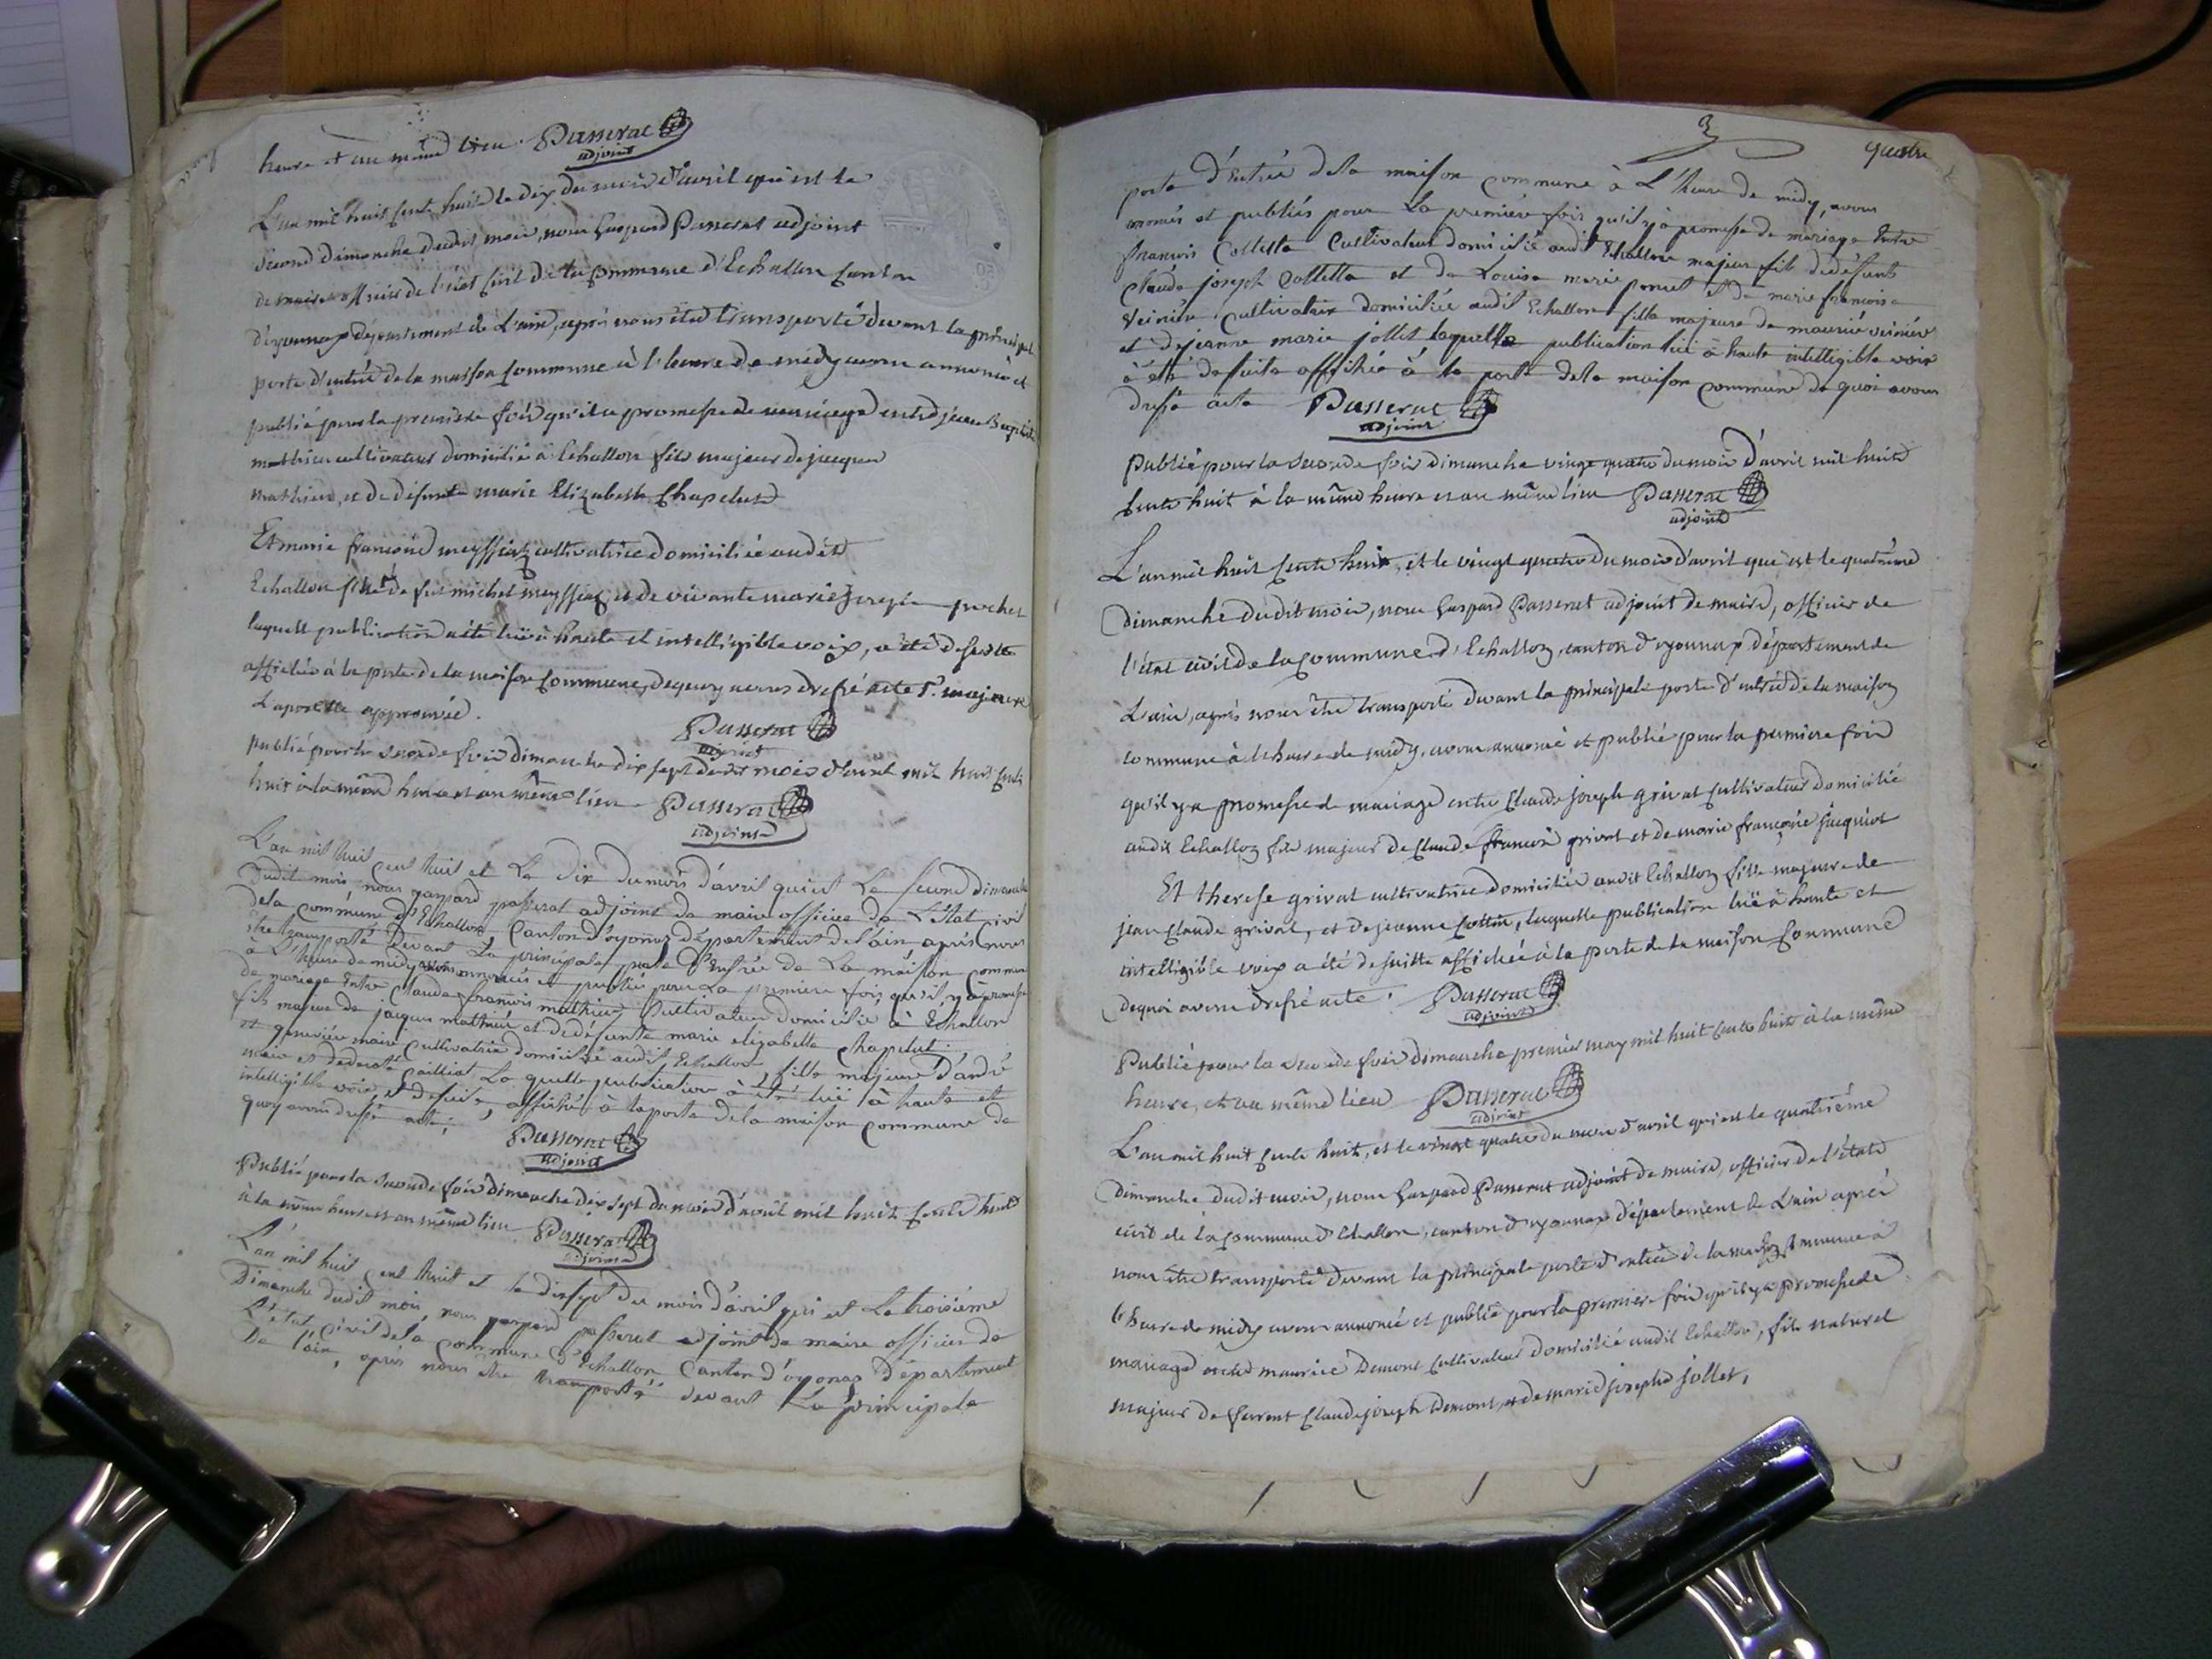 heure et au même lieu. Passerat
adjoint
L'an mil huit cents huit le dix du mois d'avril qui est le
second dimanche dudit mois, nous Gaspard Passerat adjoint
de maire officier de l'état civil de la commune d'Echallon canton
d'oyonnax département de L'ain, après nous être transporté devant la principal
porte d'entrée de la maison commune à l'heure de midy avons annoncé et
publié pour la première fois qu'il a promesse de mariage entre jean Baptiste
mathieu cultivateur domicilié à Echallon fils majeur de jacques
mathieu, et de défunte marie Elizabeth Chapelut
Et marie françoise meyssiat cultivatrice domiciliée audit
Echallon fille de feu michel meyssiat et de vivante marie Joseph pochet
laquelle publication a été lüe à haute et intelligible voix, a été de suitte
affichée à la porte de la maison commune, de quoy avons dressé acte majeure
L'apostille approuvée.
Passerat
adjoint
publié pour la seconde fois dimanche dix sept dudit mois d'avril mil huit cents
huit à la même heure et au même lieu Passerat
adjoint
L'an mil huit cent huit et Le dix du mois d'avril qui est Le second dimanche
dudit mois nous gaspard passerat adjoint de maire officier de L'état civil
dela commune d'Echallon Canton d'oyonnaz département de l'ain, après nous
être transporté devant La principale porte d'Entrée de La maison commune
à L'heure de midy avons annoncés et publiés pour La premiere fois qu'il y à promesse
de mariage Entre Claude françois mathieu Cultivateur domicilié à Echallon
fils majeur de jacques mathieu et de défunte marie elizabette Chapelut
et geneviéve maire Cultivatrice domiciliée audit Echallon, fille majeure d'andré
maire et de pailliat La quelle publication à été lüe à haute et
intelligible voix, et de suite, affiché à la porte dela maison commune de
quoy avons dressé acte,
Passerat
adjoint
Publié pour la seconde fois dimanche dix sept du mois d'avril mil huit cents huit
à la même heure et au même lieu Passerat
adjoint
L'an mil huit cent huit et le dix sept du mois d'avril qui est Le troisième
Dimanche dudit mois, nous gaspard passerat adjoint de maire officier de
L'état civil dela commune d'Echallon Canton d'oyonaz département
De l'ain, après nous être transporté devant La principale
quatre
porte d'Entrée dela maison commune à L'heure de midy, avons
anoncés et publiés pour La première fois qu'il y à promesse de mariage Entre
françois Colletta Cultivateur domicilié audit Echallon majeur fils de défunt
Claude joseph Colletta et de Louise marie poncet et de marie francoise
Veiniér Cultivatrice domiciliée audit Echallon fille majeure de maurice veiniér
et de jeanne marie jollet laquelle publication lüe à haute intelligible voix
à été de suite affichée à la porte dela maison commune de quoi avons
dressé acte Passerat
adjoint
Publié pour la seconde fois dimanche vingt quatre du mois d'avril mil huit
cents huit à la même heure et au même lieu Passerat
adjoint
L'an mil huit cents huit, et le vingt quatre du mois d'avril que est le quatrième
dimanche dudit mois, nous Gaspard Passerat adjoint de maire, officier de
l'état civil de la commune d'Echallon, canton d'oyonnax département de
L'ain, après nous être transporté devant la principale porte d'entrée de la maison
commune à l'heure de midy, avons annoncé et publié pour la premiere fois
qu'il y a promesse de mariage entre Claude joseph grivat cultivateur domicilié
audit Echallon fils majeur de Claude françois grivat et de marie françoise jacquiot
Et therese grivat cultivatrice domiciliée audit Echallon fille majeure de
jean Claude grivat, et de jeanne Cottin, laquelle publication lüe à haute et
intelligible voix a été de suitte affichée à la porte de la maison Commune
dequoi avons dressé acte. Passerat
adjoint
Publié pour la seconde fois dimanche premier may mil huit cents huit à la même
heure, et au même lieu Passerat
adjoint
L'an mil huit cents huit, et le vingt quatre du mois d'avril qui est le quatrième
dimanche dudit mois, nous Gaspard Passerat adjoint de maire, officier de l'état
civil de la commune d'Echallon, canton d'oyonnax département de L'ain après
nous être transporté devant la principale porte d'entrée de la maison commune à
l'heure de midy avons annoncé et publié pour la premiere fois qu'il y a promesse de
mariage entre maurice Demont cultivateur domicilié audit Echallon, fils naturel
majeur de Claude joseph Demont, et de marie josephe jollet,